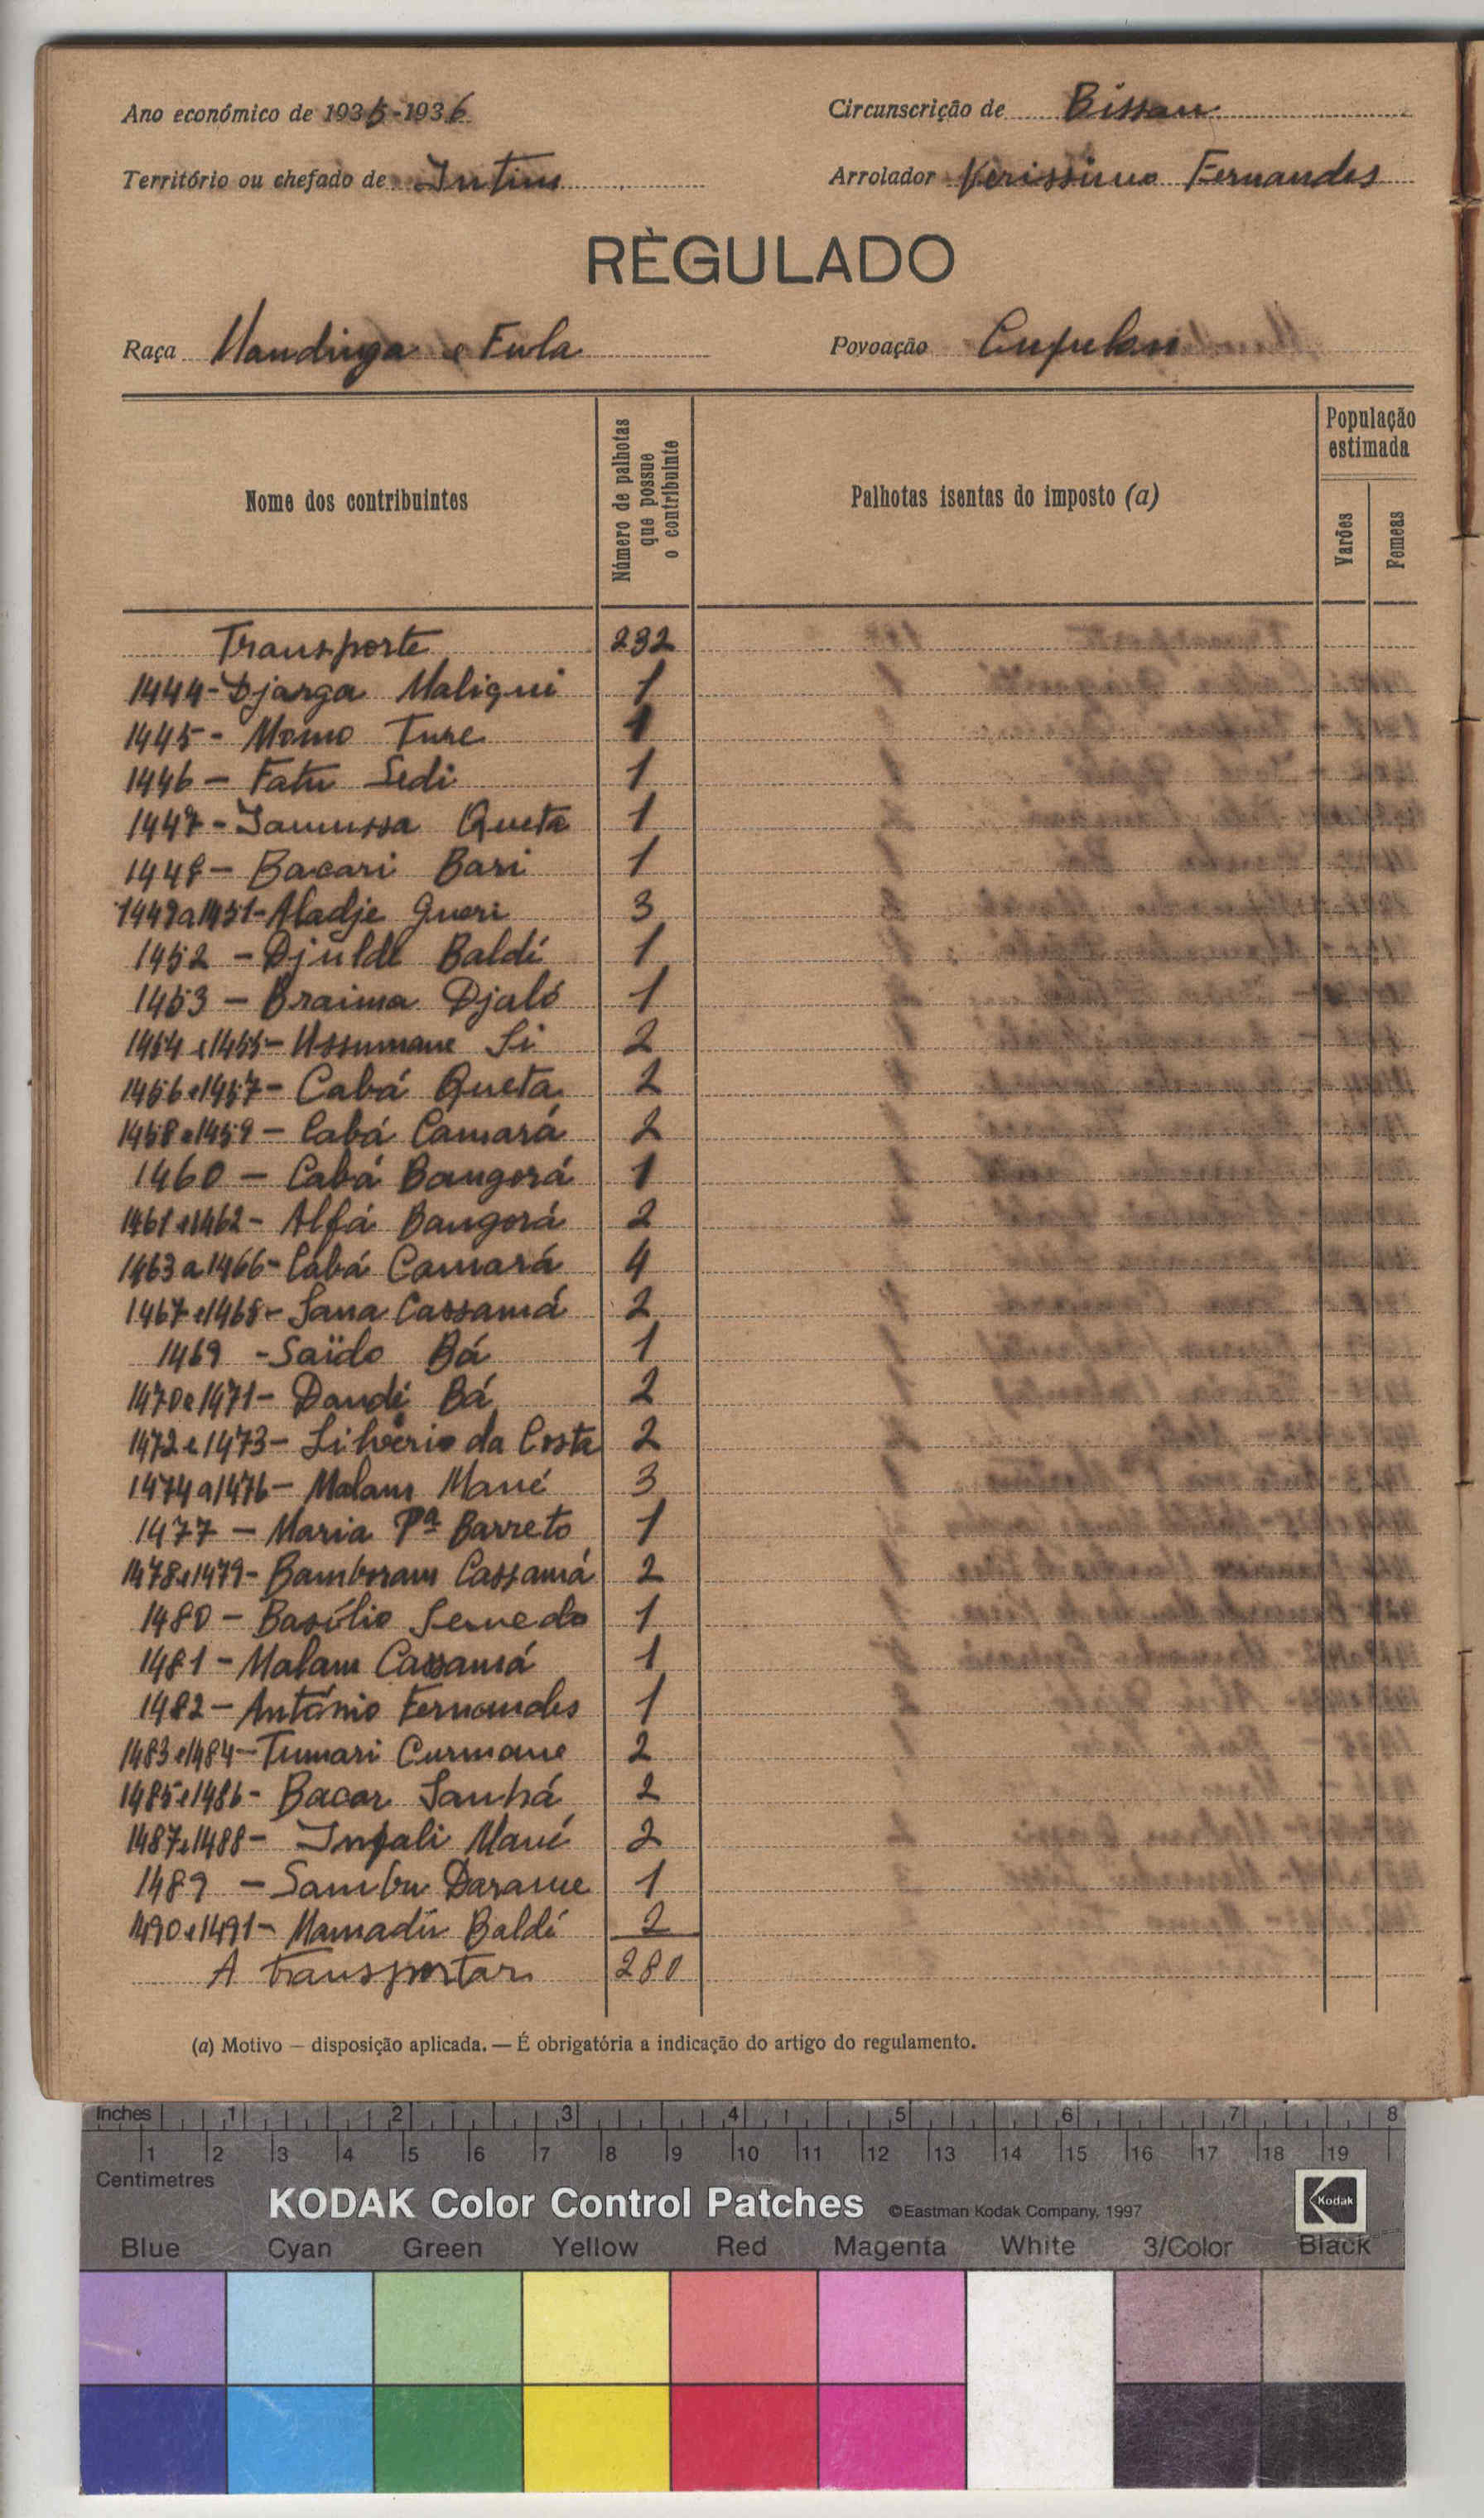 Ano económico de 1935-1936
Circunscrição de Bissau
Território ou chefado de Intim
Arrolador Verissimo Fernandes
RÈGULADO
Raça Mandinga e Fula
Povoação Cupulon
Nome dos contribuintes
Número de palhotas que possue o contribuinte
Palhotas isentas do imposto (a)
População estimada
Varões
Femeas
Transporte 232
1444-Djarga Maliqui 1
1445- Momo Ture 1
1446- Fatu Sedi 1
1447-Iamussa Queta 1
1448- Bacari Bari 1
1449a1451-Aladje Gueri 3
1452 - Djulde Baldé 1
1453 - Braima Djaló 1
1454 e1455- Ussumane Si 2
1456e1457- Cabá Queta 2
1458e1459 - Cabá Camará 2
1460 - Cabá Bangorá 1
1461e1462- Alfá Bangorá 2
1463a1466- Cabá Camará 4
1467e1468- Sana Cassamá 2
1469 -Saïdo Bá 1
1470e1471- Daudé Bá 2
1472e1473- Silvério da Costa 2
1474a1476- Malam Mané 3
1477 - Maria Pª Barreto 1
1478e1479- Bamboram Cassamá 2
1480- Basílio Semedo 1
1481- Malam Cassamá 1
1482- António Fernandes 1
1483e1484-Tumari Curmane 2
1485e1486- Bacar Sanhá 2
1487e1488- Infali Mané 2
1489 - Sambu Darame 1
1490e1491- Mamadú Baldé 2
A transportar 280
(a) Motivo — disposição aplicada. — É obrigatória a indicação do artigo do regulamento.
Inches 1 2 3 4 5 6 7 8
1 2 3 4 5 6 7 8 9 10 11 12 13 14 15 16 17 18 19
Centimetres
KODAK Color Control Patches ©Eastman Kodak Company, 1997 Kodak
Blue Cyan Green Yellow Red Magenta White 3/Color Black